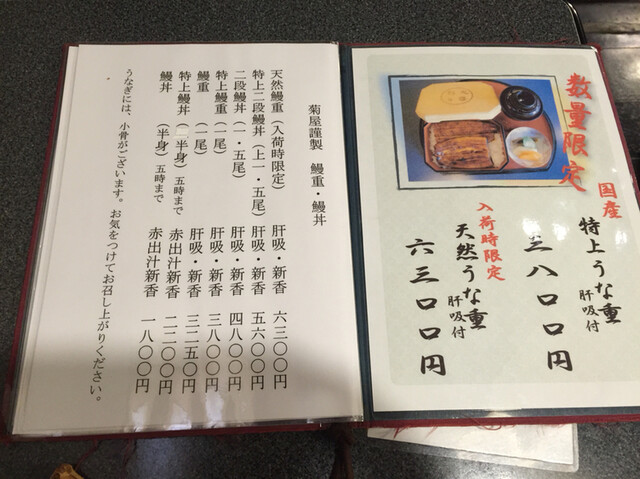 数量限定
国産
特上うな重
肝吸付
三八〇〇円
入荷時限定
天然うな重
肝吸付
六三〇〇円
菊屋謹製 鰻重・鰻丼
天然鰻重(入荷時限定) 肝吸・新香 六三〇〇円
特上二段鰻丼(上一・五尾) 肝吸・新香 五六〇〇円
二段鰻丼(一・五尾) 肝吸・新香 四八〇〇円
特上鰻重(一尾) 肝吸・新香 三八〇〇円
鰻重(一尾) 肝吸・新香 三二五〇円
特上鰻丼(半身)五時まで 赤出汁新香 二二〇〇円
鰻丼(半身)五時まで 赤出汁新香 一八〇〇円
うなぎには、小骨がございます。お気をつけてお召し上がりください。